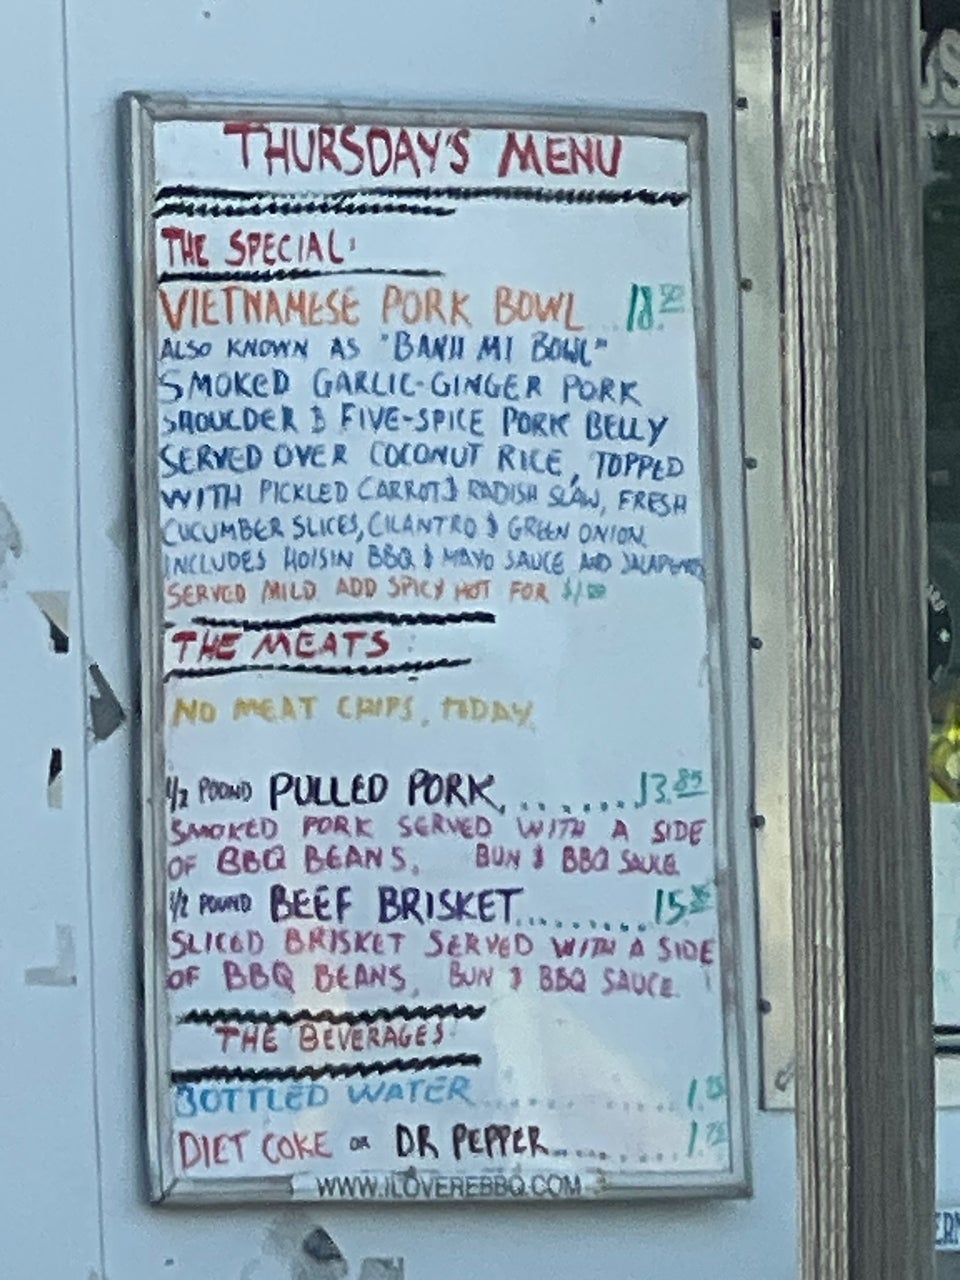 THURSDAY'S MENU
THE SPECIAL:
VIETNAMESE PORK BOWL 18.
ALSO KNOWN AS "BANH MI BOWL"
SMOKED GARLIC-GINGER PORK
SHOULDER & FIVE-SPICE PORK BELLY
SERVED OVER COCONUT RICE, TOPPED
WITH PICKLED CARROT & RADISH SLAW, FRESH
CUCUMBER SLICES, CILANTRO & GREEN ONION.
INCLUDES HOISIN BBQ & MAYO SAUCE AND JALAPENOS
SERVED MILD. ADD SPICY HOT FOR $1.00
THE MEATS:
NO MEAT CHIPS, TODAY
1/2 POUND PULLED PORK........13.85
SMOKED PORK SERVED WITH A SIDE
OF BBQ BEANS, BUN & BBQ SAUCE
1/2 POUND BEEF BRISKET........15.
SLICED BRISKET SERVED WITH A SIDE
OF BBQ BEANS, BUN & BBQ SAUCE.
THE BEVERAGES:
BOTTLED WATER........1.
DIET COKE OR DR PEPPER........1.
WWW.ILOVEREBBQ.COM